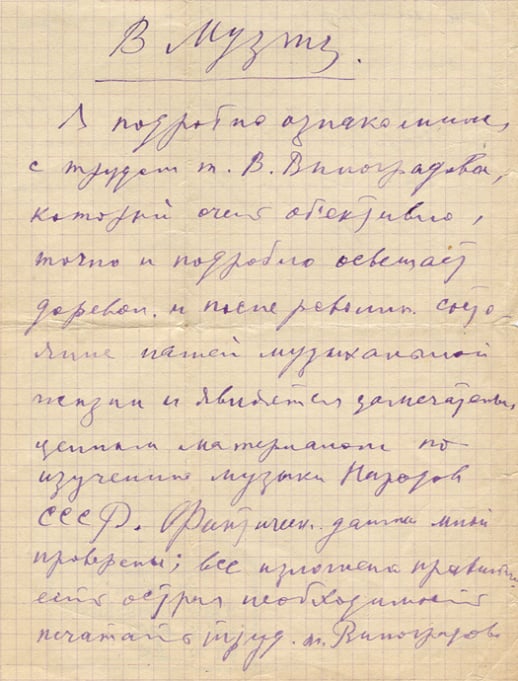 В Музгиз.
Я подробно ознакомился
с трудом т. В. Виноградова,
который очень обективно,
точно и подробно освещает
доревол. и после револю. состо-
яние нашей музыкальной
жизни и является замечательн.
ценным материалом по
изучению музыки Народов
СССР. Фактичек. данные мной
проверены; все изложена правильно
есть острая необходимость
печатать труд. т. Виноградова